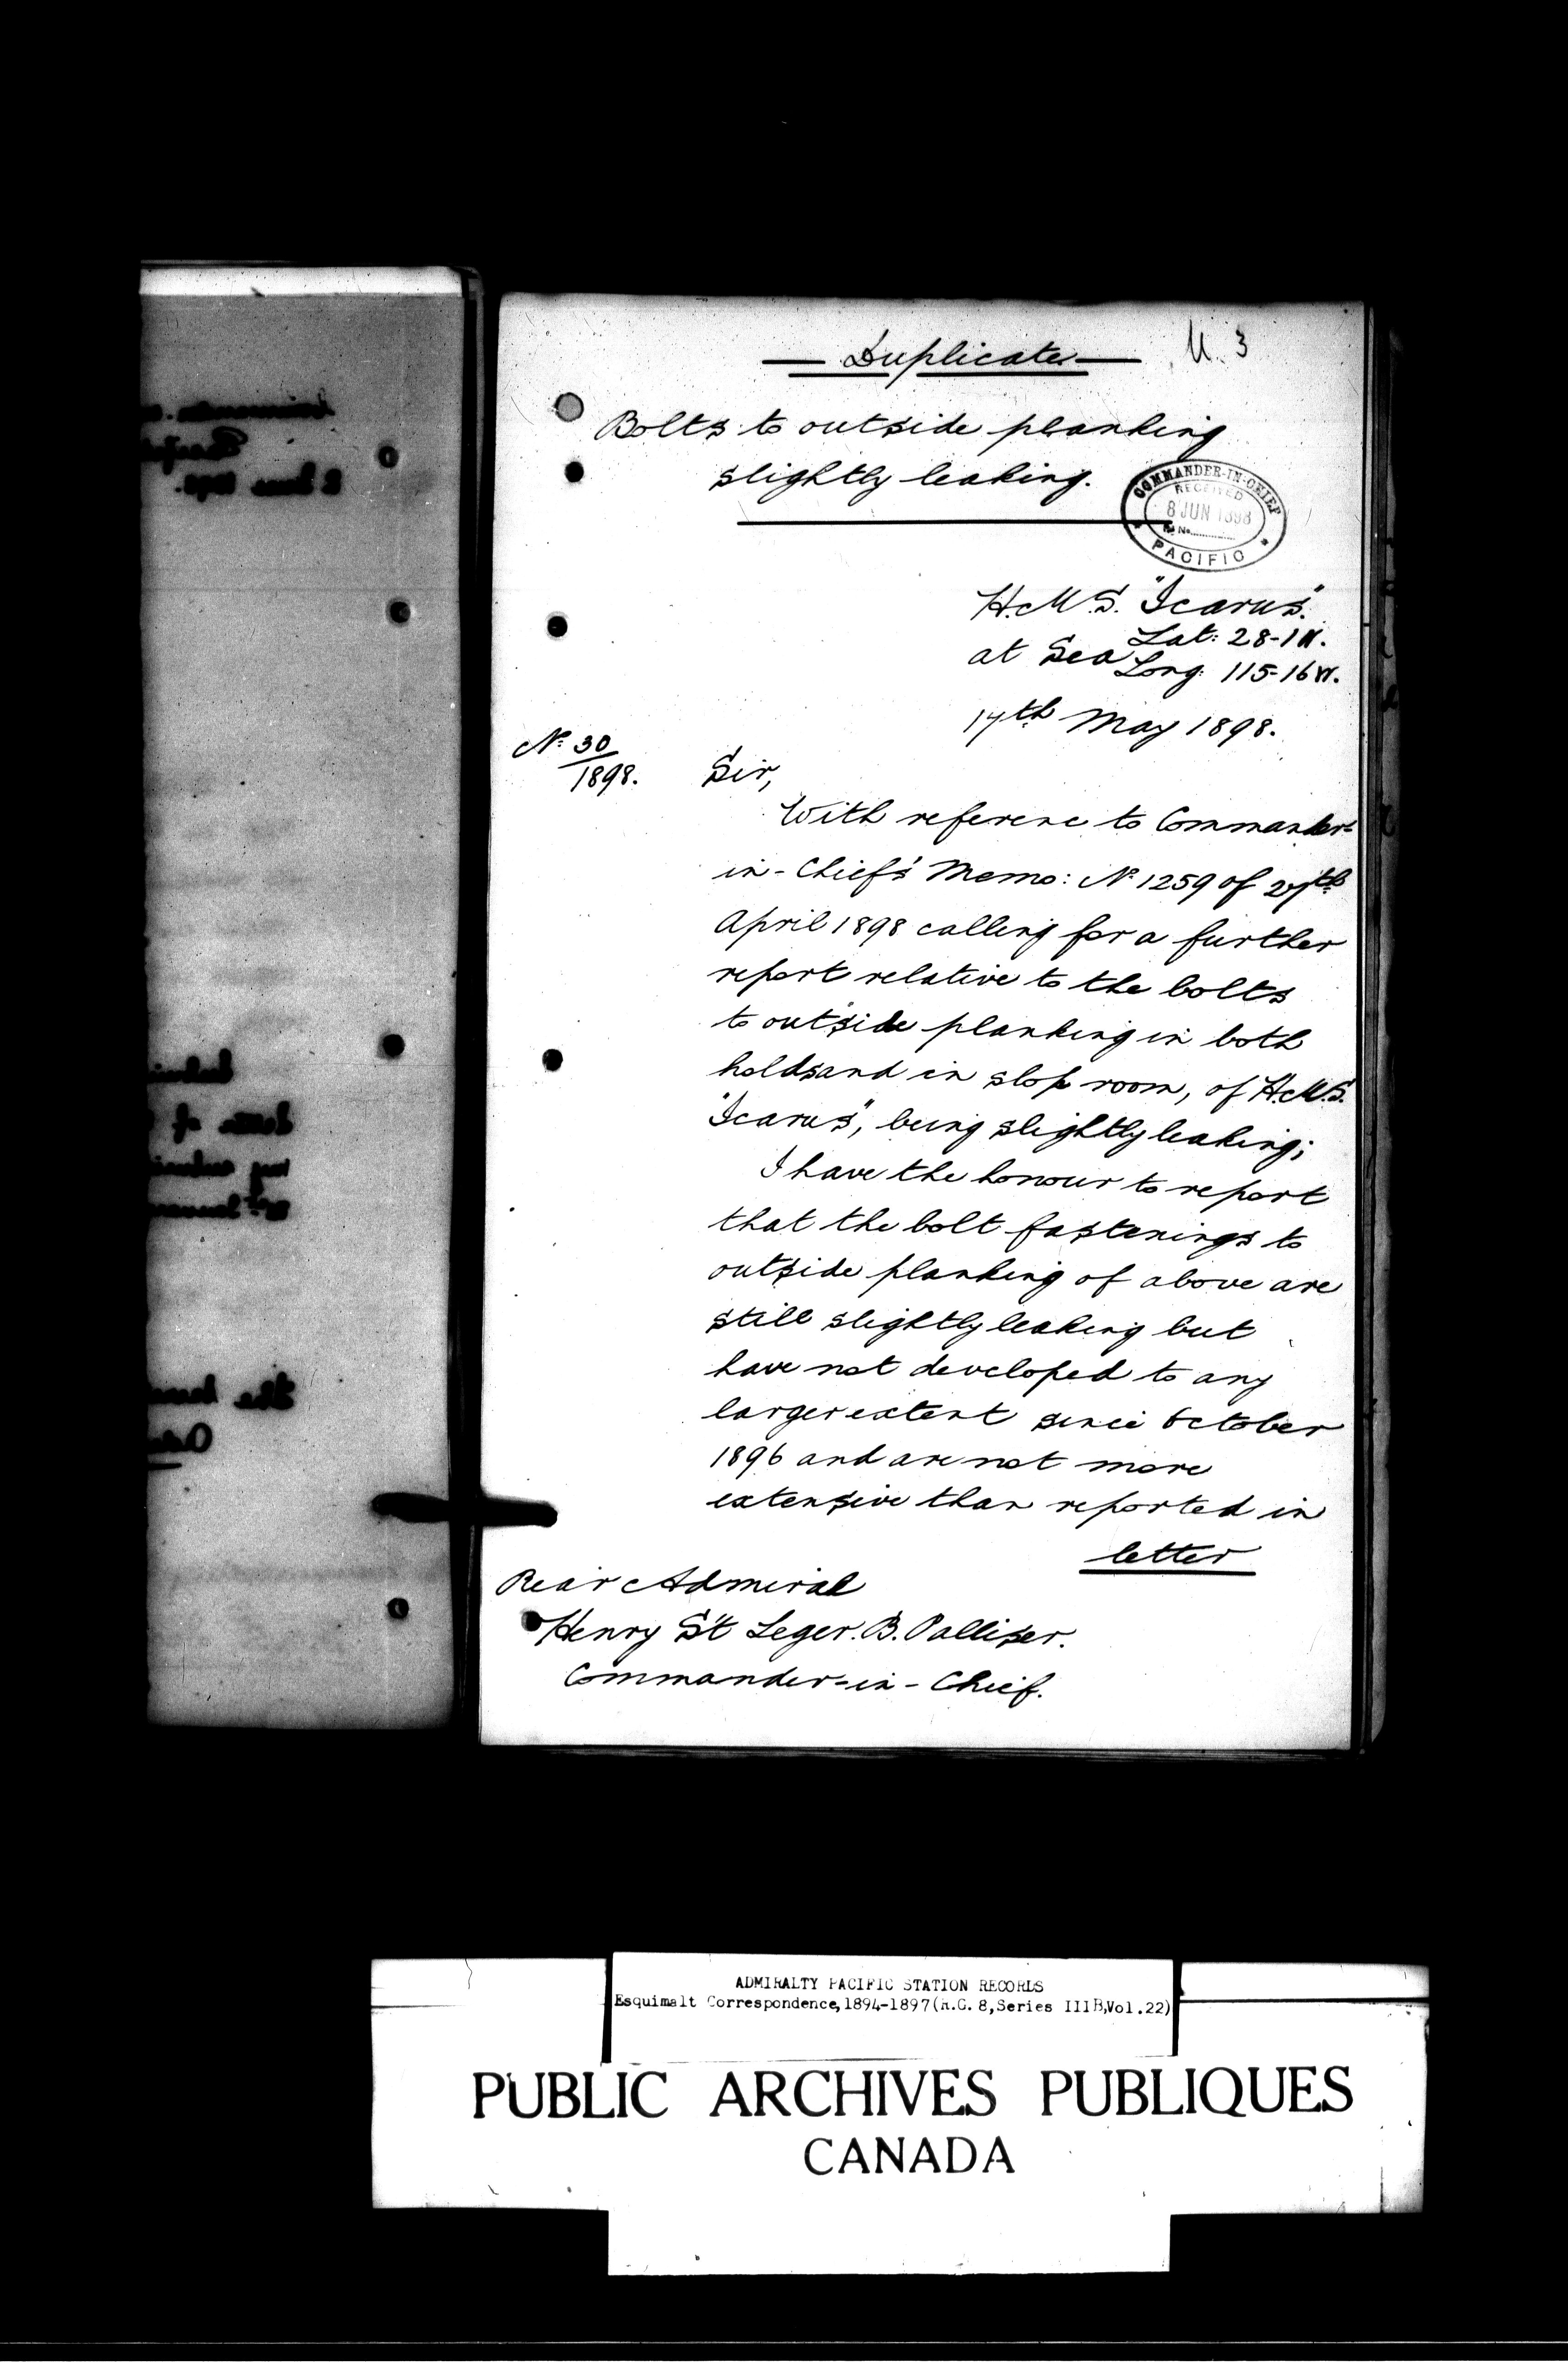 Duplicate
U. 3
Bolts to outside planking
slightly leaking.
COMMANDER-IN-CHIEF
RECEIVED
8 JUN 1898
No
PACIFIC
H.M.S. "Icarus".
at Sea Lat: 28-1 N.
Long: 115-16 W.
17th May 1898.
No 30/1898.
Sir,
With reference to Commander-
in-Chief's Memo: No 1259 of 27th
April 1898 calling for a further
report relative to the bolts
to outside planking in both
holds and in slop room, of H.M.S.
"Icarus", being slightly leaking;
I have the honour to report
that the bolt fastenings to
outside planking of above are
still slightly leaking but
have not developed to any
larger extent since October
1896 and are not more
extensive than reported in
letter
Rear Admiral
Henry St Leger. B. Palliser.
Commander-in-Chief.
ADMIRALTY PACIFIC STATION RECORDS
Esquimalt Correspondence, 1894-1897 (R.G. 8, Series IIIB, Vol. 22)
PUBLIC ARCHIVES PUBLIQUES
CANADA